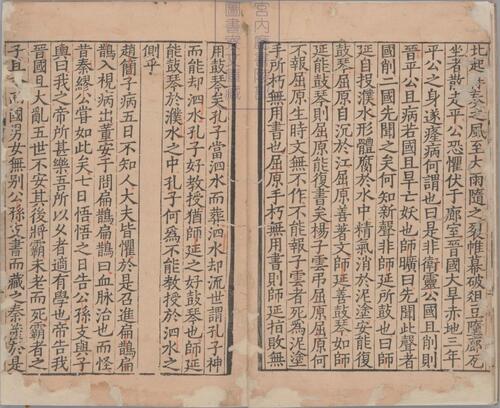 北起再奏之風至大雨隨之裂帷幕破俎豆墮廊瓦
坐者散走平公恐懼伏于廊室晉國大旱赤地三年
平公之身遂癃病何謂也曰是非衛靈公國且削則
晉平公且病若國且旱亡妖也師曠曰先聞此聲者
國削二國先聞之矣何知新聲非師延所鼓也曰師
延自投濮水形體腐於水中精氣消於泥塗安能復
鼓琴屈原自沉於江屈原善著文師延善鼓琴如師
延能鼓琴則屈原能復書矣楊子雲弔屈原屈原何
不報屈原生時文無不作不能報子雲者死爲泥塗
手既朽無用書也屈原手朽無用書則師延指敗無
用鼓琴矣孔子當泗水而葬泗水却流世謂孔子神
而能却泗水孔子好教授猶師延之好鼓琴也師延
能鼓琴於濮水之中孔子何爲不能教授於泗水之
側乎
趙簡子病五日不知人大夫皆懼於是召進扁鵲扁
鵲入視病出董安于問扁鵲扁鵲曰血脉治也而怪
昔秦繆公嘗如此矣七日悟悟之日告公孫支與子
輿曰我之帝所甚樂吾所以乆者適有學也帝告我
晉國且大亂五世不安其後將霸未老而死霸者之
子且令而國男女無別公孫支書而藏之秦䇿於是
宮内
圖書